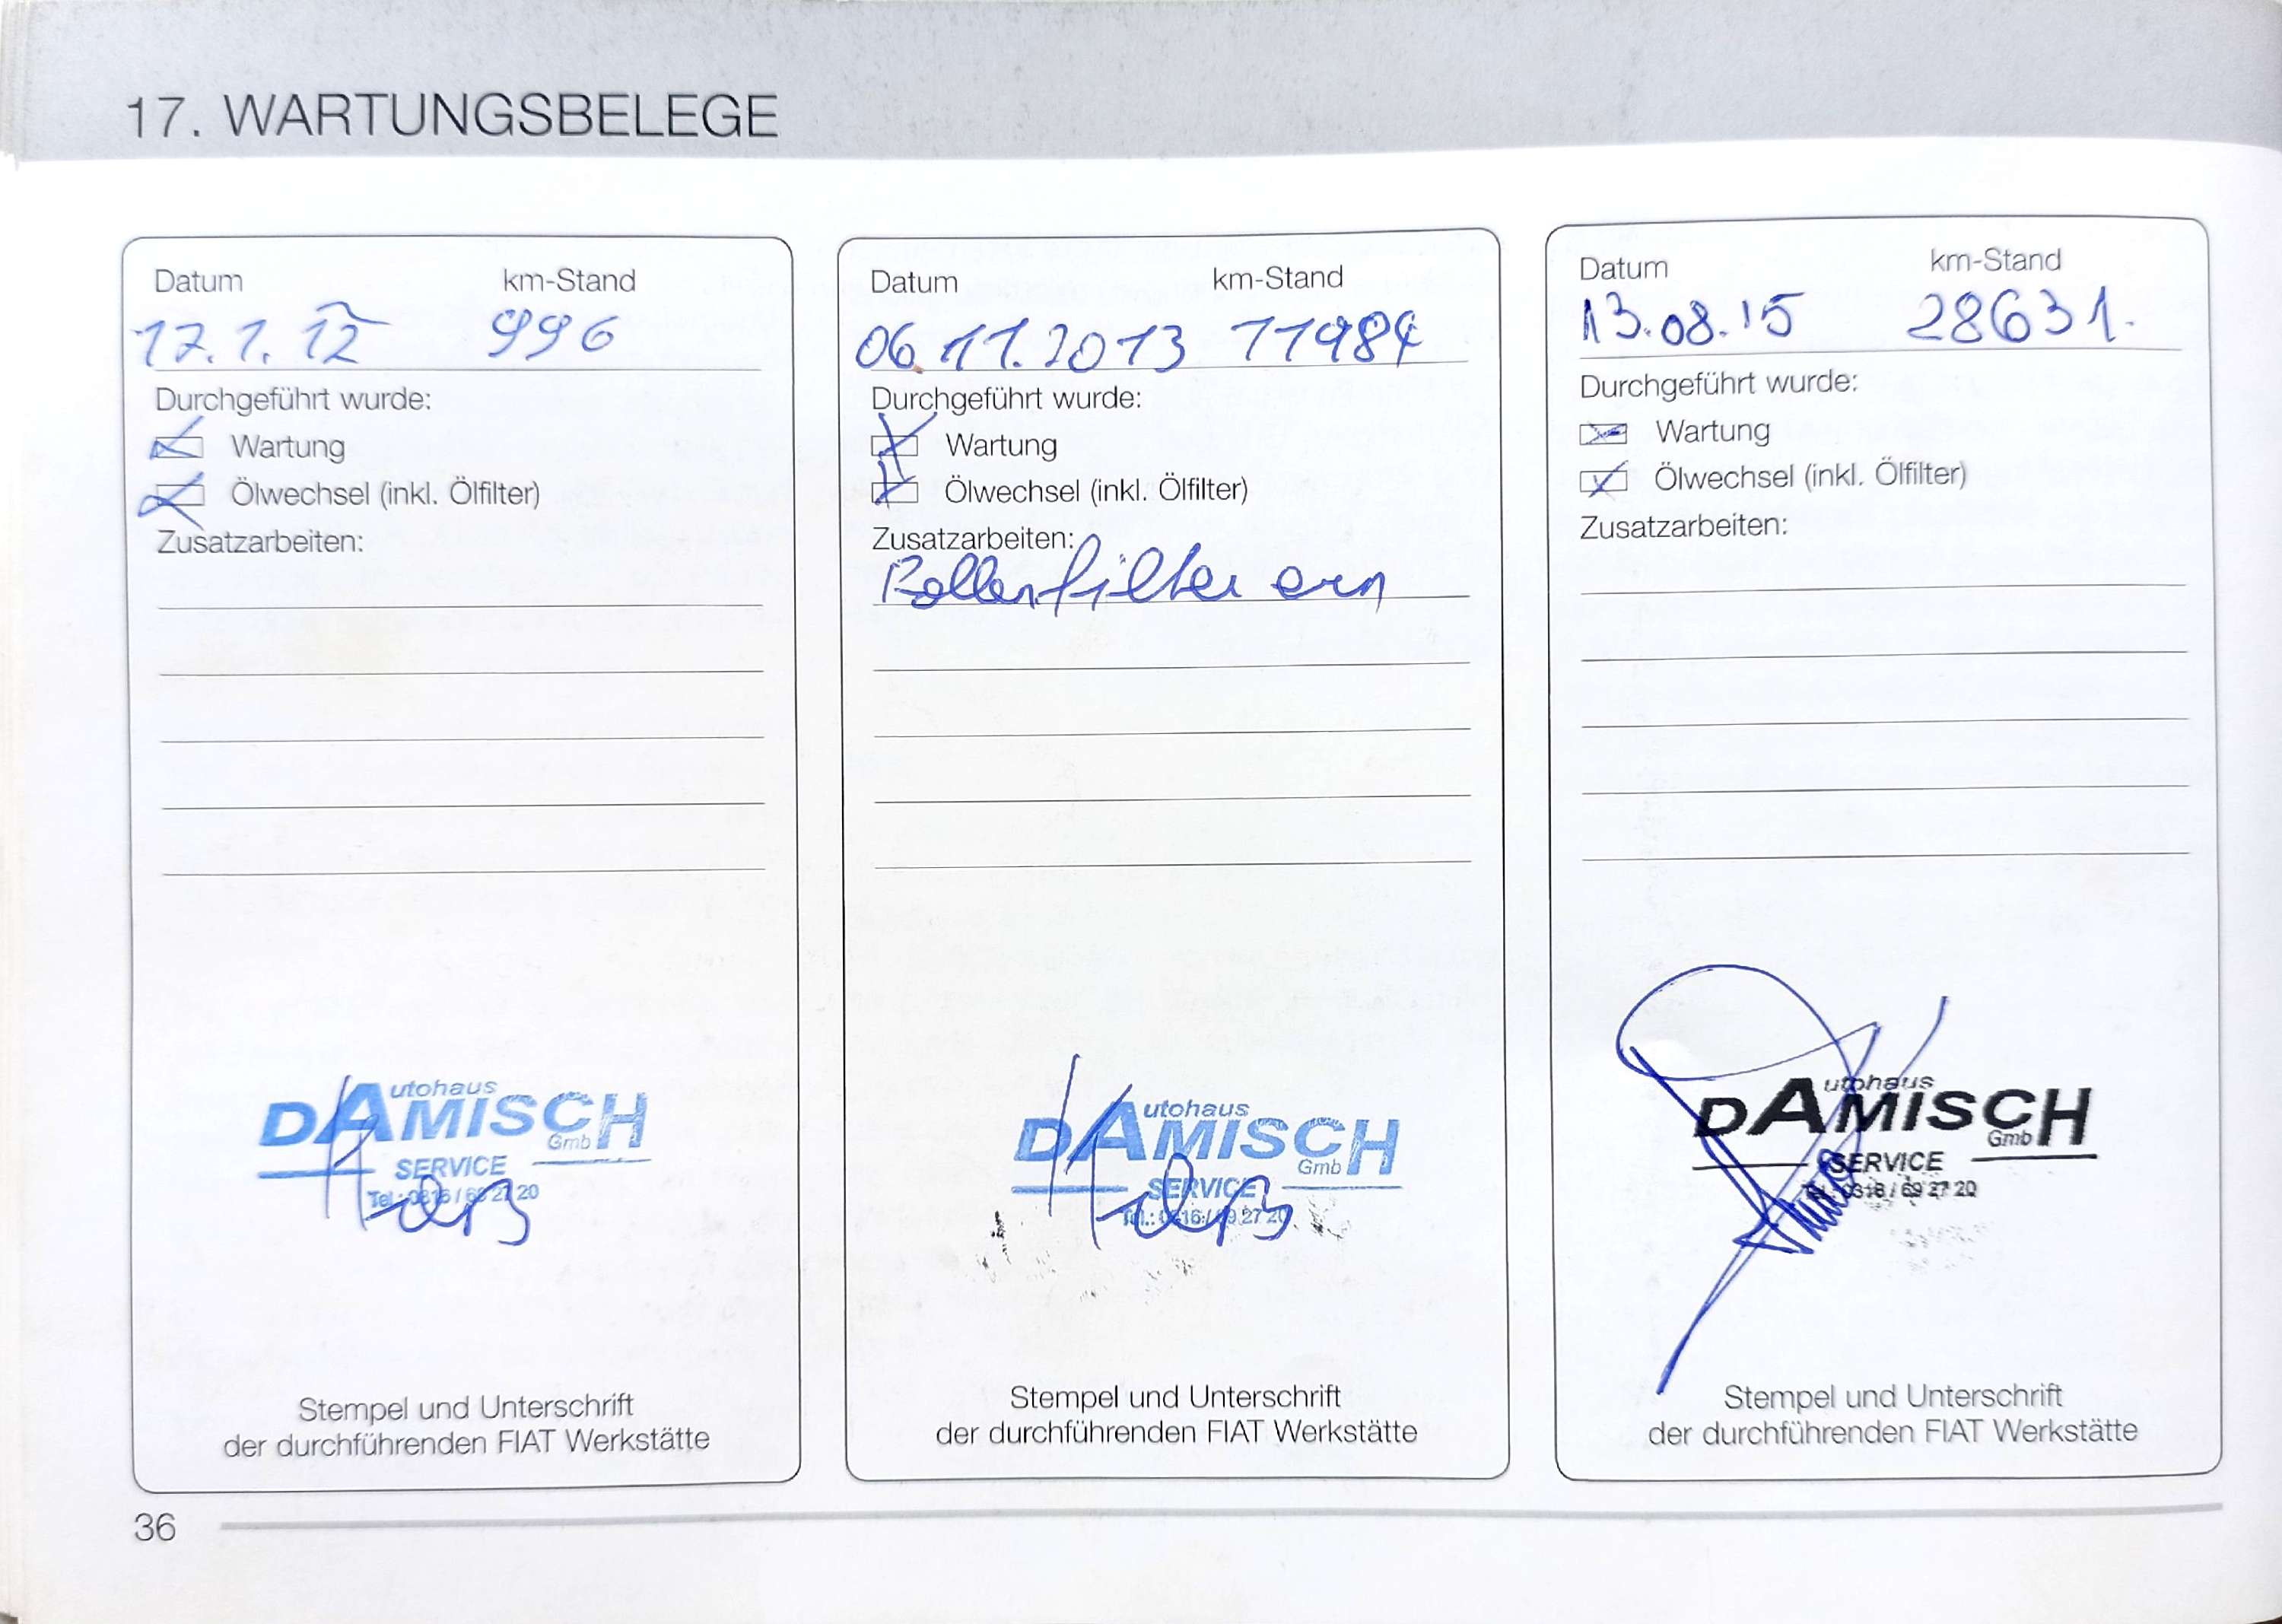 17. WARTUNGSBELEGE
Datum km-Stand
17.1.12 996
Durchgeführt wurde:
Wartung
Ölwechsel (inkl. Ölfilter)
Zusatzarbeiten:
Autohaus
DAMISCH
GmbH
SERVICE
Tel.: 0316 / 69 27 20
Stempel und Unterschrift
der durchführenden FIAT Werkstätte
Datum km-Stand
06.11.2013 11984
Durchgeführt wurde:
Wartung
Ölwechsel (inkl. Ölfilter)
Zusatzarbeiten:
Pollenfilter ern
Autohaus
DAMISCH
GmbH
SERVICE
Tel.: 0316 / 69 27 20
Stempel und Unterschrift
der durchführenden FIAT Werkstätte
Datum km-Stand
13.08.15 28631.
Durchgeführt wurde:
Wartung
Ölwechsel (inkl. Ölfilter)
Zusatzarbeiten:
Autohaus
DAMISCH
GmbH
SERVICE
Tel.: 0316 / 69 27 20
Stempel und Unterschrift
der durchführenden FIAT Werkstätte
36